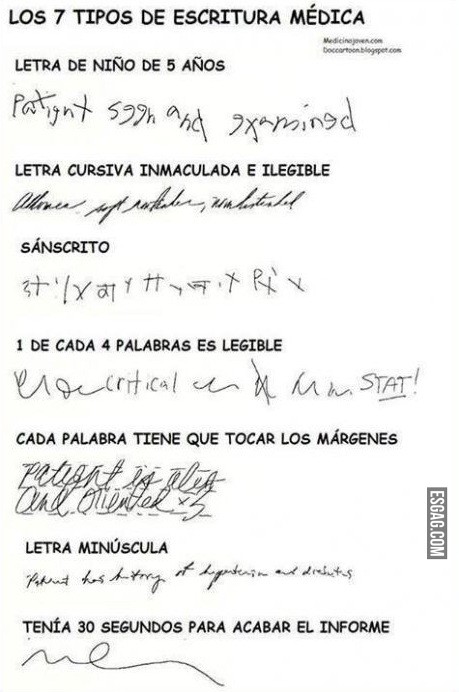 LOS 7 TIPOS DE ESCRITURA MÉDICA
Medicinajoven.com
Doccartoon.blogspot.com
LETRA DE NIÑO DE 5 AÑOS
Patient seen and examined
LETRA CURSIVA INMACULADA E ILEGIBLE
soft nontender, nondistended
SÁNSCRITO
1 DE CADA 4 PALABRAS ES LEGIBLE
critical STAT!
CADA PALABRA TIENE QUE TOCAR LOS MÁRGENES
patient is alert
and oriented x3
LETRA MINÚSCULA
Patient has history of hypertension and diabetes
TENÍA 30 SEGUNDOS PARA ACABAR EL INFORME
ESGAG.COM